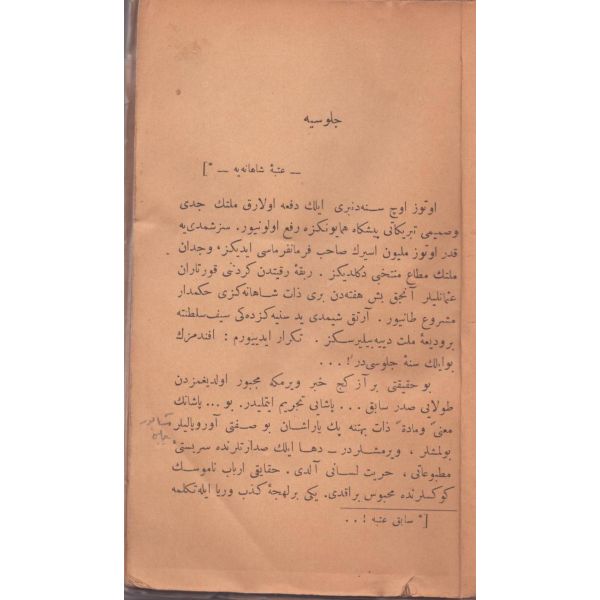 جلوسیه
— عتبهٔ شاهانه‌یه — *]
اوتوز اوچ سنه‌دنبری ایلك دفعه اولارق ملتك جدی
وصمیمی تبریکاتی پیشگاه همایونکزه رفع اولونیور. سزشمدی‌یه
قدر اوتوز ملیون اسیرك صاحب فرمانفرماسی ایدیکز، وجدان
ملتك مطاع منتخبی دکلدیکز. ربقهٔ رقیتدن کردننی قورتاران
عثمانلیلر آنجق بش هفته‌دن بری ذات شاهانه‌کزی حکمدار
مشروع طانیور. آرتق شیمدی ید سنیه‌کزده‌کی سیف سلطنته
برودیعهٔ ملت دییه‌بیلیرسکز. تکرار ایدییورم: افندمزك
بوایلك سنهٔ جلوسی‌در!...
بو حقیقتی بر آز کج خبر ویرمکه مجبور اولدیغمزدن
طولایی صدر سابق... پاشایی تجریم ایتملیدر. بو... پاشانك
معنیً ومادةً ذات بهتنه پك یاراشان بو صفتی آوروپالیلر
بولمشلر، ویرمشلردر — دها ایلك صدارتلرنده سربستیٔ
مطبوعاتی، حریت لسانی آلدی. حقایقی ارباب ناموسك
کوکسلرنده محبوس براقدی. یکی برلهجهٔ کذب وریا ایله تکلمه
[* سابق عتبه!..